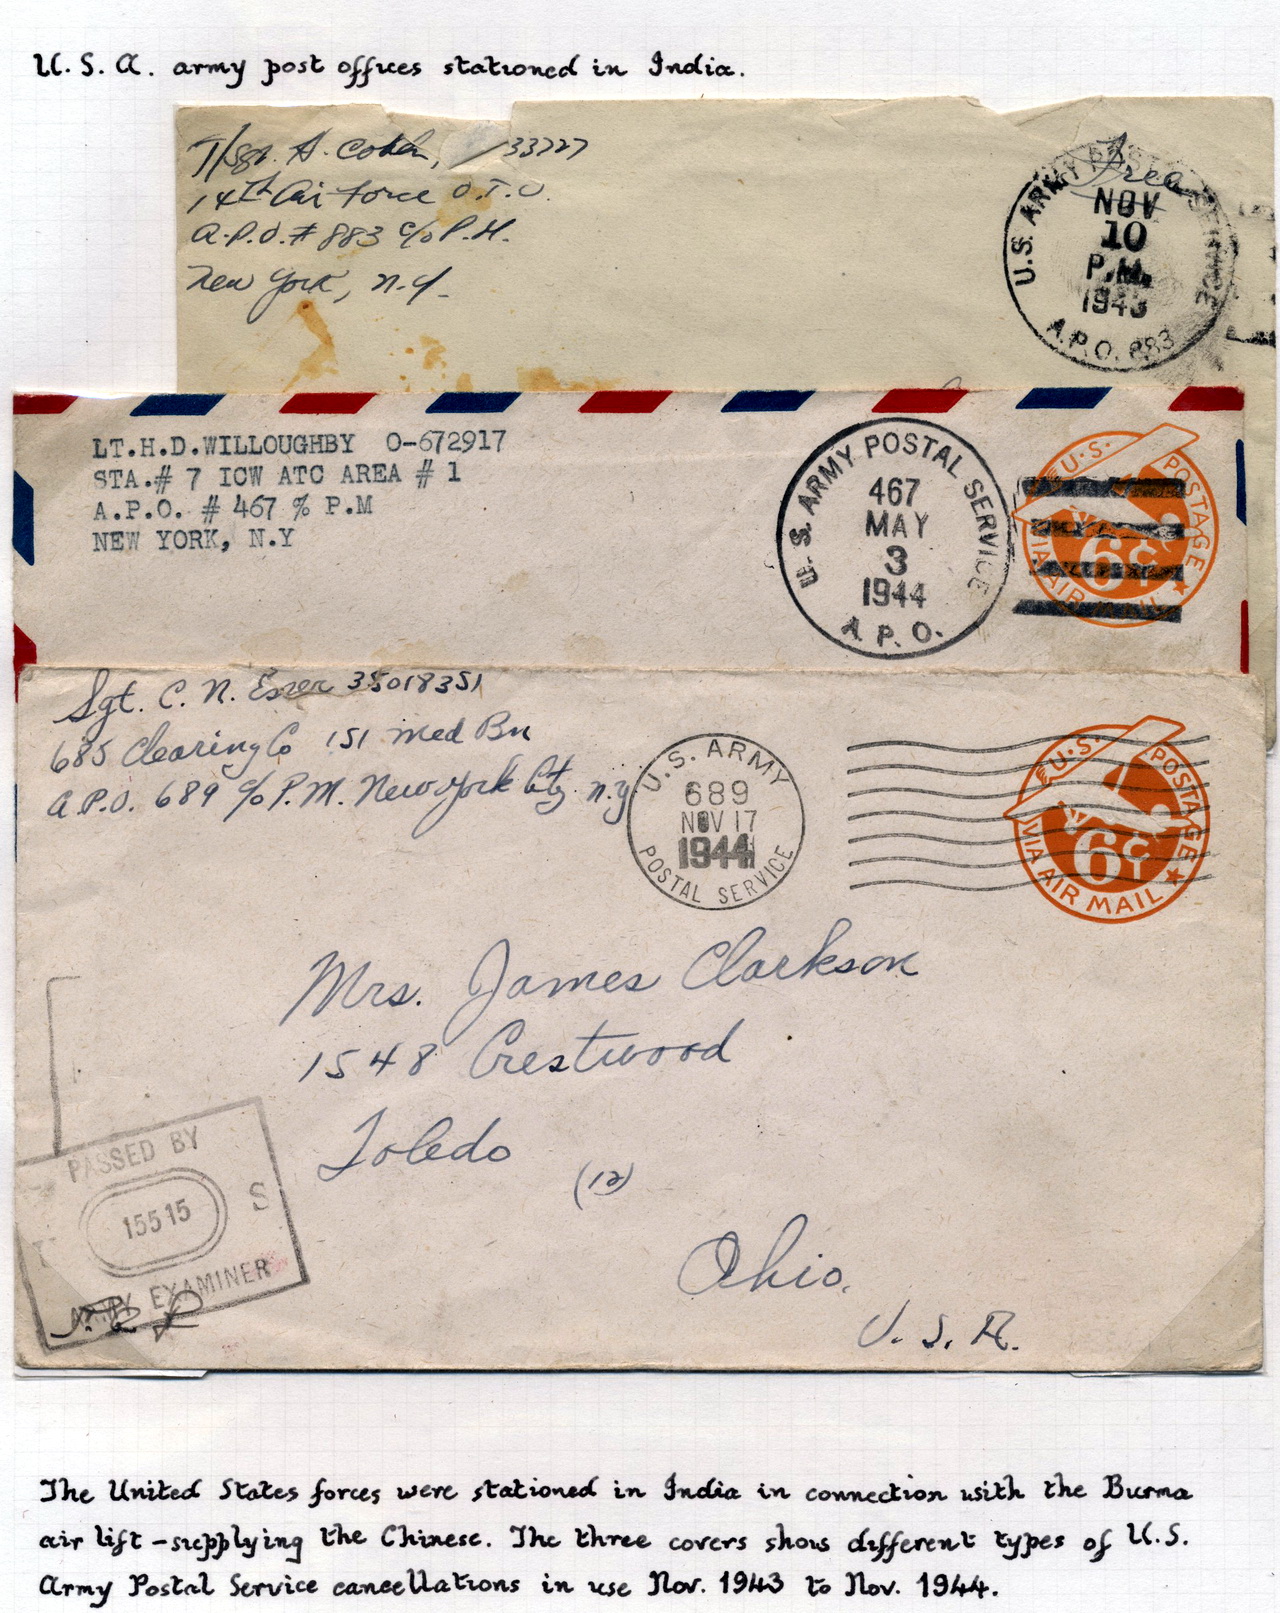 U. S. A. army post offices stationed in India.
T/Sgt. A. Cohen, 33727
14th Air Force O.T.U.
A.P.O. # 883 c/o P.M.
New York, N.Y.
Free
U.S. ARMY POSTAL SERVICE
NOV
10
P.M.
1943
A.P.O. 883
LT.H.D.WILLOUGHBY O-672917
STA.# 7 ICW ATC AREA # 1
A.P.O. # 467 % P.M
NEW YORK, N.Y
U.S. ARMY POSTAL SERVICE
467
MAY
3
1944
A. P. O.
U.S. POSTAGE
6¢
VIA AIR MAIL
Sgt. C. N. Esser 35018351
685 Clearing Co 151 Med Bn
A.P.O. 689 c/o P.M. New York City N.Y.
U.S. ARMY
689
NOV 17
1944
POSTAL SERVICE
U.S. POSTAGE
6¢
VIA AIR MAIL
Mrs. James Clarkson
1548 Crestwood
Toledo
(12)
Ohio.
U. S. A.
PASSED BY
15515 S
ARMY EXAMINER
The United States forces were stationed in India in connection with the Burma
air lift – supplying the Chinese. The three covers show different types of U.S.
Army Postal Service cancellations in use Nov. 1943 to Nov. 1944.